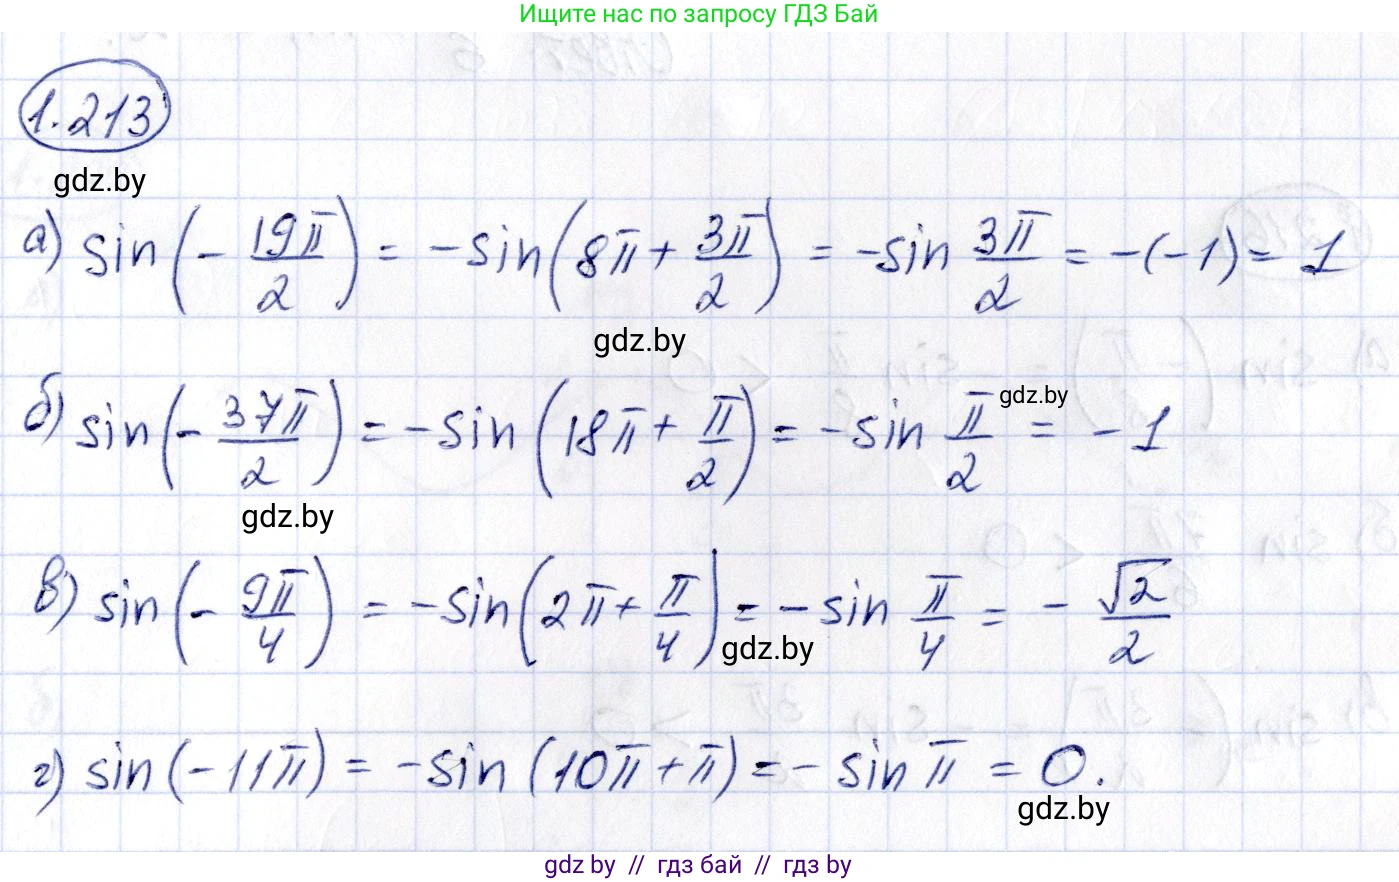 Ищите нас по запросу ГДЗ Бай
1.213
gdz.by
а) sin(-19π/2) = -sin(8π + 3π/2) = -sin 3π/2 = -(-1) = 1
gdz.by
gdz.by
б) sin(-37π/2) = -sin(18π + π/2) = -sin π/2 = -1
gdz.by
в) sin(-9π/4) = -sin(2π + π/4) = -sin π/4 = -√2/2
gdz.by
г) sin(-11π) = -sin(10π + π) = -sin π = 0.
gdz.by
gdz by // гдз бай // гдз by